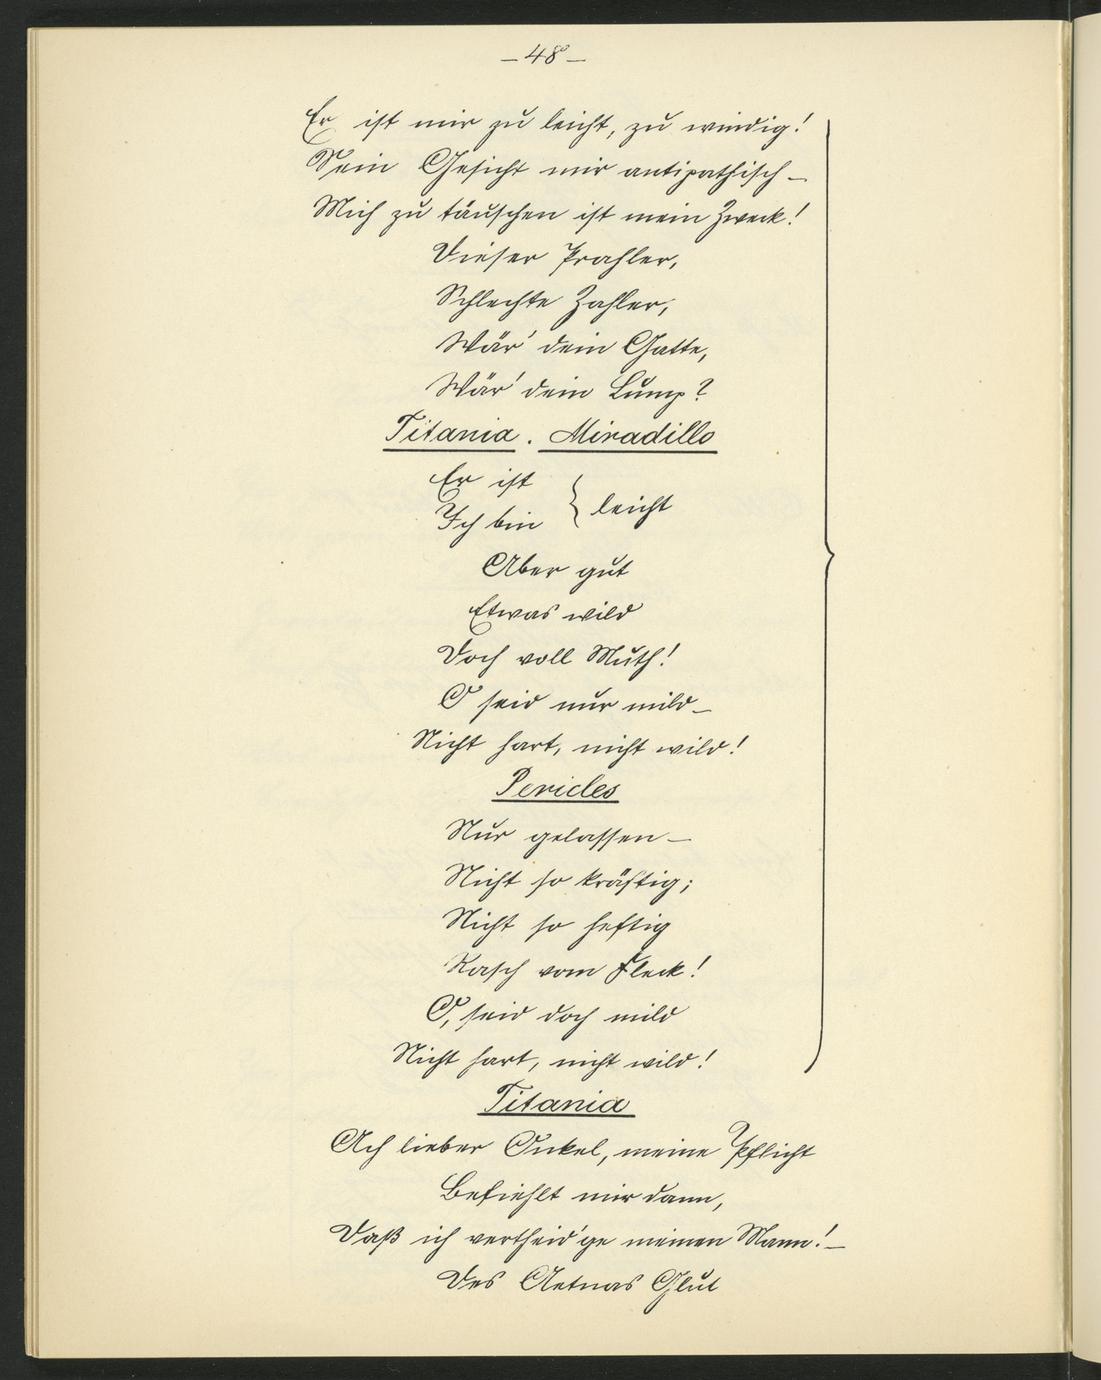 – 48 –
Er ist mir zu leicht, zu windig!
Sein Gesicht mir antipathisch –
Mich zu täuschen ist mein Zweck!
Dieser Prahler,
Schlechte Zahler,
Wär' dein Gatte,
Wär' dein Lump?
Titania. Miradillo
Er ist
Ich bin } leicht
Aber gut
Etwas wild
Doch voll Muth!
O seid nur mild –
Nicht hart, nicht wild!
Pericles
Nur gelassen –
Nicht so kräftig;
Nicht so heftig
Rasch vom Fleck!
O, seid doch mild
Nicht hart, nicht wild!
Titania
Ach lieber Onkel, meine Pflicht
Befiehlt mir dann,
Daß ich vertheid'ge meinen Mann! –
Des Aetnas Glut